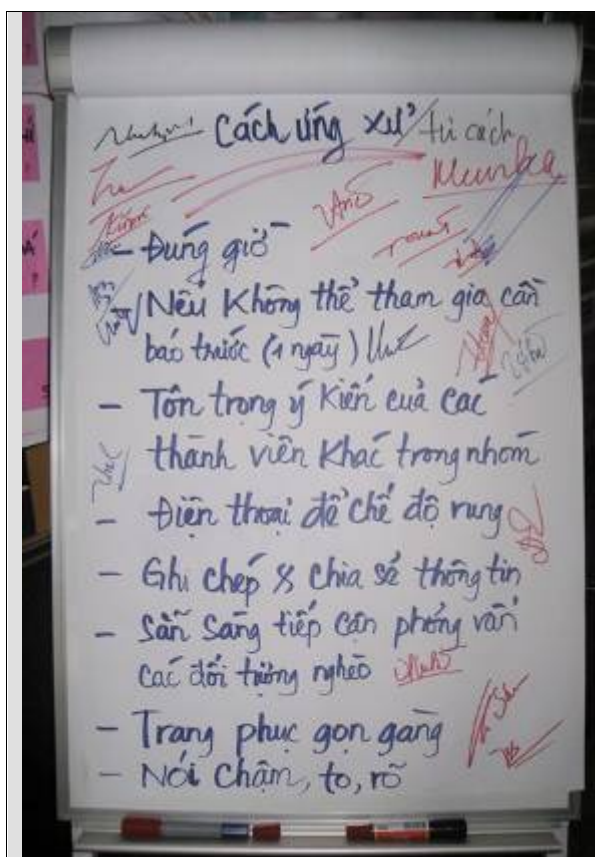 Cách ứng xử / tư cách
- Đúng giờ
- Nếu Không thể tham gia cần
báo trước (1 ngày)
- Tôn trọng ý Kiến của các
thành viên Khác trong nhóm
- Điện thoại để chế độ rung
- Ghi chép & chia sẻ thông tin
- Sẵn sàng tiếp cận phỏng vấn
các đối tượng nghèo
- Trang phục gọn gàng
- Nói chậm, to, rõ